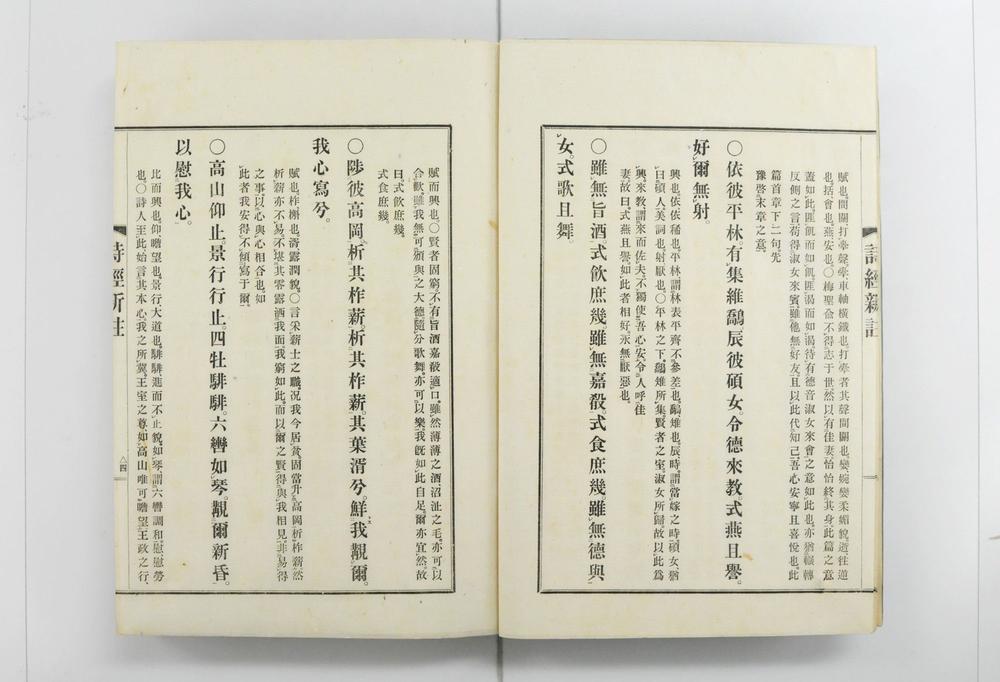 賦也。間關打舝聲。舝車軸橫鐵也。打舝者其聲間關也。孌婉孌柔媚貌。逝往逝
也。括會也。燕安也。〇梅聖兪不得志于世。然以有佳妻。怡怡終其身。此篇之意
蓋如此。匪飢而如飢。匪渴而如渴。待有德音淑女來會之意如此也。亦猶輾轉
反側之言。苟得淑女來賓。雖他無好友。且以此代知己。吾心安寧且喜悅也。此
篇首章下二句。先
豫啓末章之意。
〇依彼平林。有集維鷮。辰彼碩女。令德來教。式燕且譽。
好爾無射。
興也。依依稀也。平林謂林表平齊不參差也。鷮雉也。辰時謂當嫁之時。碩女猶
曰碩人。美詞也。射厭也。〇平林之下。鷮雉所集。賢者之室。淑女所歸。故以此爲
興。來教謂來而佐夫。不獨使吾心安。令人呼佳
妻。故曰式燕且譽。如此者相好永無厭惡也。
〇雖無旨酒。式飮庶幾。雖無嘉殽。式食庶幾。雖無德與
女。式歌且舞。
詩經新註
賦而興也。〇賢者固窮。不有旨酒嘉殽適口。雖然薄薄之酒。沼沚之毛。亦可以
合歡。雖我無可頒與之大德。隨分歌舞。亦可以樂。我旣如此自足。爾亦宜然。故
曰式飮庶幾。
式食庶幾。
〇陟彼高岡。析其柞薪。析其柞薪。其葉湑兮。鮮我覯爾。
我心寫兮。
賦也。柞櫟也。湑露潤貌。〇言采薪士之職。況我今居貧。固當升高岡析柞薪。然
析薪亦不易。不堪其零露洒我面。我窮如此。而以爾之賢得與我相見。非易得
之事。以心與心相合也。如
此者我安得不傾寫于爾。
〇高山仰止。景行行止。四牡騑騑。六轡如琴。覯爾新昏。
以慰我心。
比而興也。仰瞻望也。景行大道也。騑騑進而不止貌。如琴謂六轡調和。慰慰勞
也。〇詩人至此始言其本心。我之所冀。王室之尊如高山唯可瞻望。王政之行。
詩經新註
八四